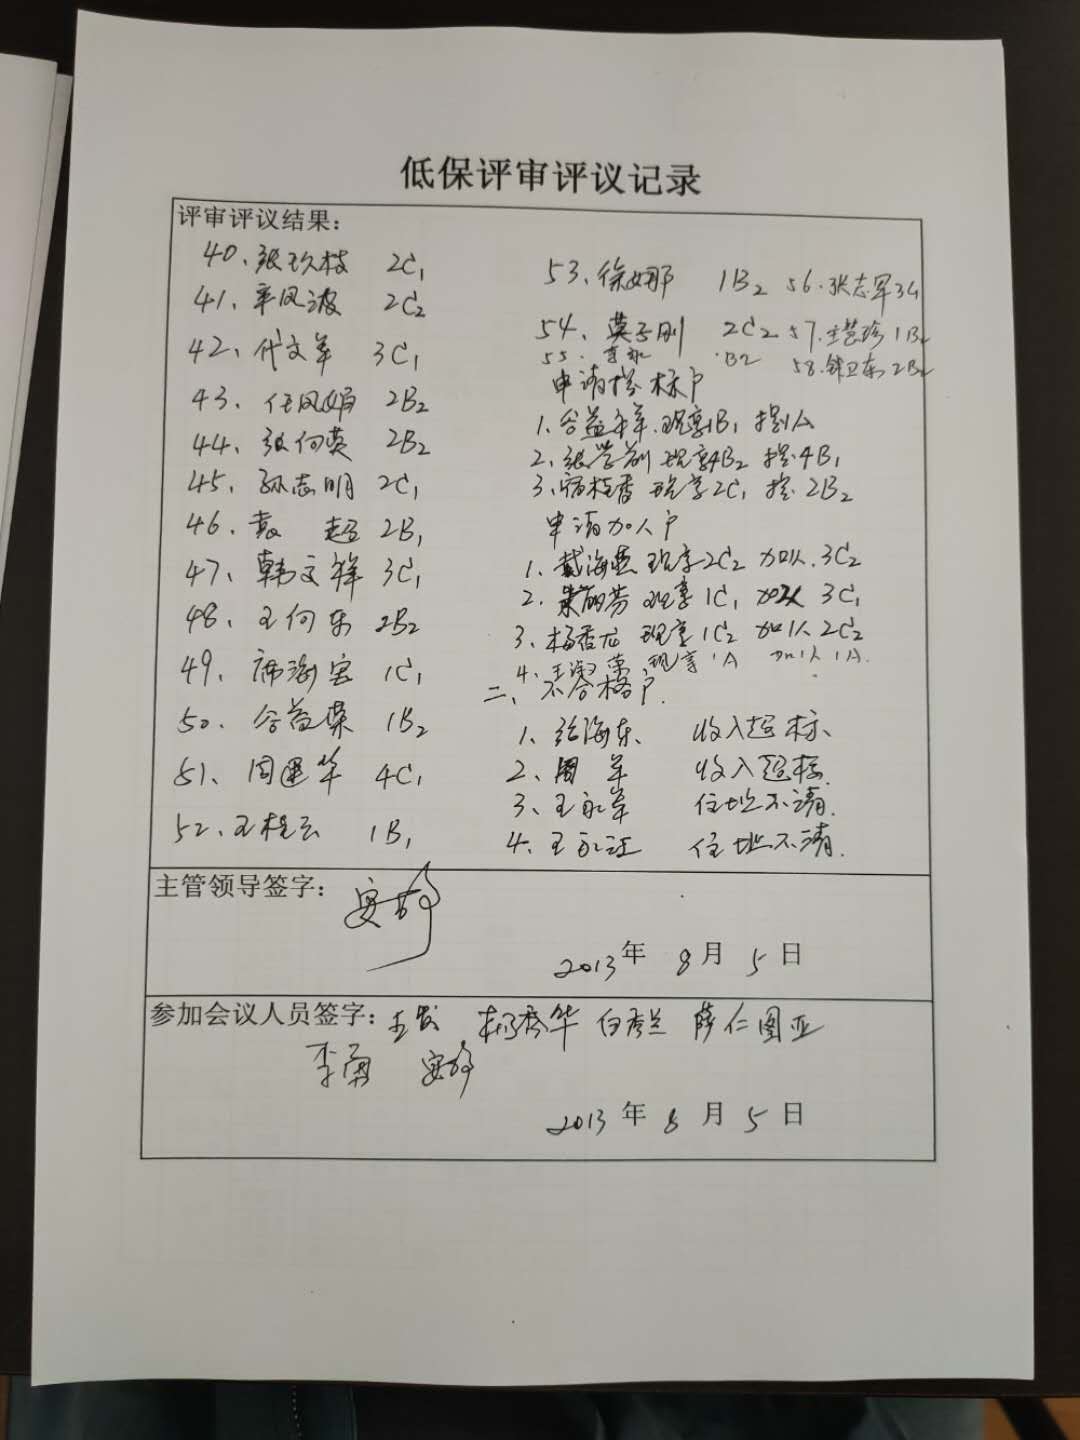 低保评审评议记录
评审评议结果：
40、张玖枝 2C₁
41、辛凤波 2C₂
42、代文革 3C₁
43、任凤娟 2B₂
44、张向英 2B₂
45、孙志明 2C₁
46、袁 超 2B₁
47、韩文祥 3C₁
48、王向东 2B₂
49、席海宏 1C₁
50、谷益荣 1B₂
51、周建华 4C₁
52、王桂云 1B₁
53、徐娜 1B₂ 56、张志军
54、莫子刚 2C₂ 57、王慧珍 1B₂
55、李 B2 58、钟卫东 2B₂
申请提标户
1、谷益 现享1B₁ 提1A
2、张学 现享4B₂ 提4B₁
3、宿桂香 现享2C₁ 提2B₂
申请加人户
1、戴海燕 现享2C₂ 加1人3C₂
2、芬 现享1C₁ 加2人3C₁
3、杨香龙 现享1C₂ 加1人2C₂
4、王淑荣 现享1A 加1人1A.
二、不合格户.
1、海东、 收入超标、
2、周 军 收入超标.
3、王永军 住址不清.
4、王永江 住址不清.
主管领导签字：
2013年 8月 5日
参加会议人员签字： 王发 杨秀华 白秀兰 薛仁图亚
李勇
2013年 8月 5日